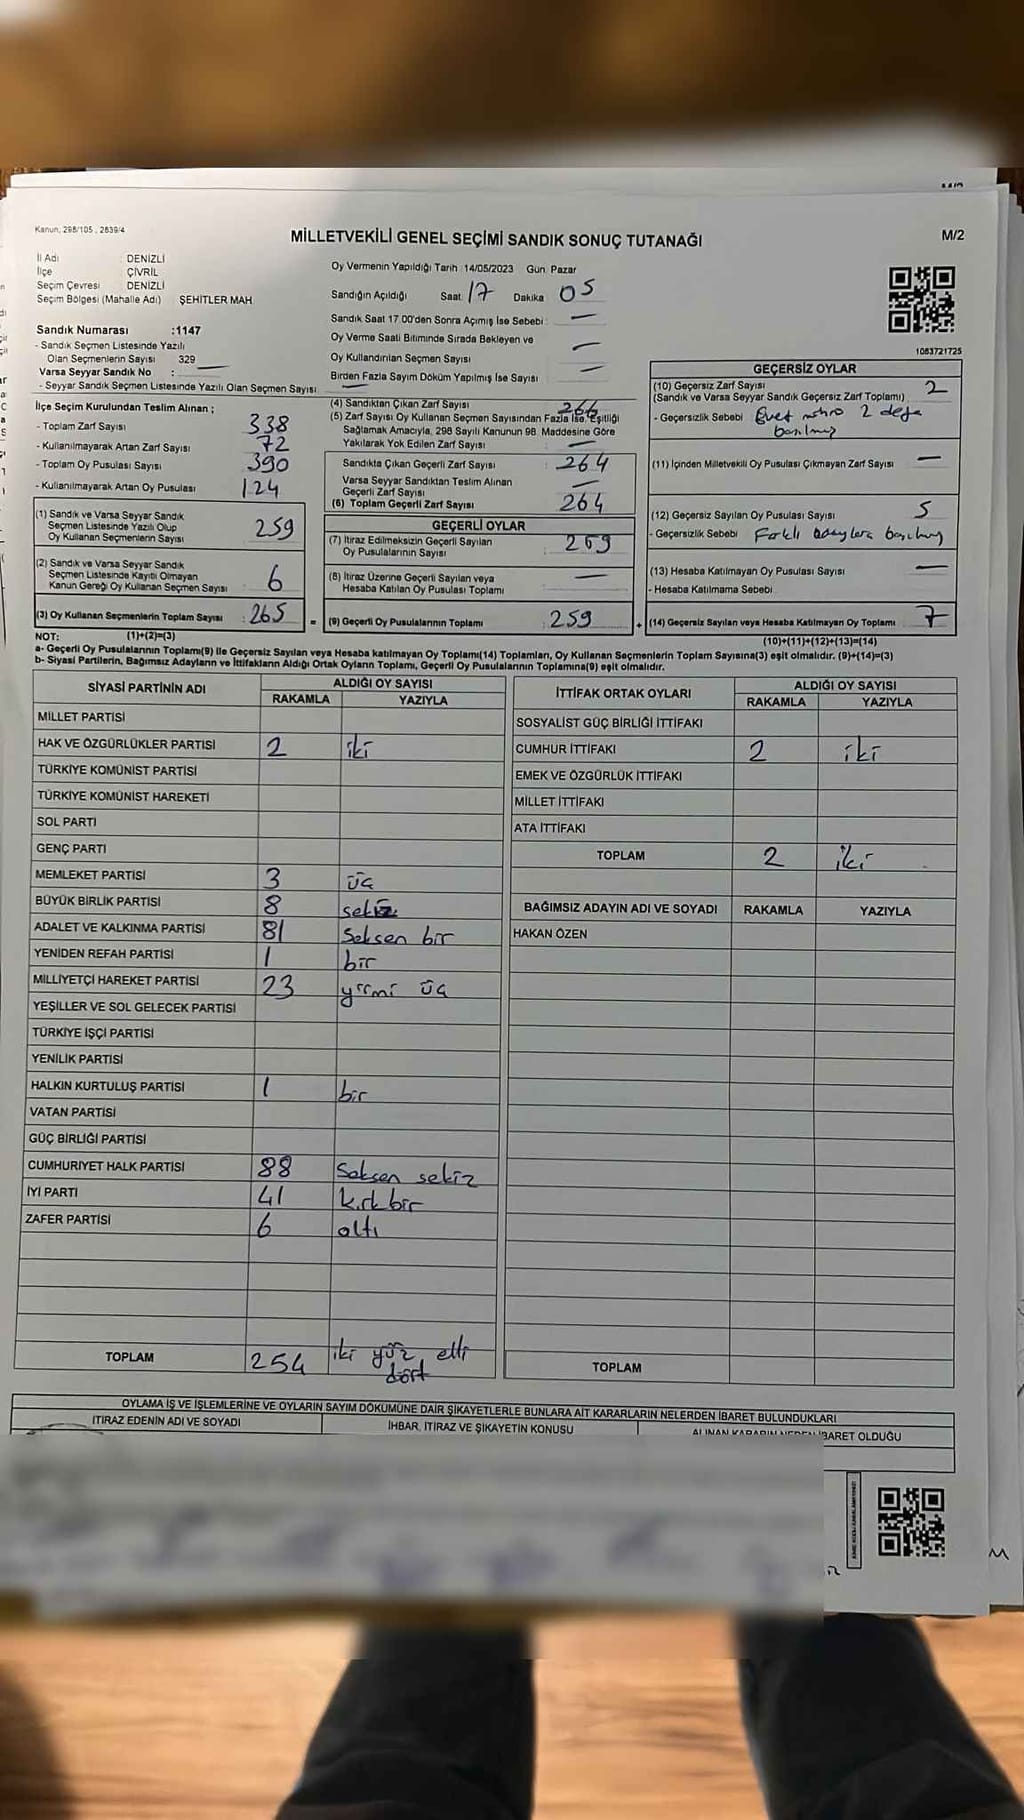 Kanun, 298/105 , 2839/4
MİLLETVEKİLİ GENEL SEÇİMİ SANDIK SONUÇ TUTANAĞI
M/2
İl Adı : DENİZLİ
İlçe : ÇİVRİL
Seçim Çevresi : DENİZLİ
Seçim Bölgesi (Mahalle Adı) : ŞEHİTLER MAH
Sandık Numarası :1147
- Sandık Seçmen Listesinde Yazılı
Olan Seçmenlerin Sayısı 329
Varsa Seyyar Sandık No : —
- Seyyar Sandık Seçmen Listesinde Yazılı Olan Seçmen Sayısı : —
Oy Vermenin Yapıldığı Tarih :14/05/2023 Gün: Pazar
Sandığın Açıldığı Saat 17 Dakika 05
Sandık Saat 17.00'den Sonra Açılmış İse Sebebi : —
Oy Verme Saati Bitiminde Sırada Bekleyen ve
Oy Kullandırılan Seçmen Sayısı —
Birden Fazla Sayım Döküm Yapılmış İse Sayısı : —
1083721725
İlçe Seçim Kurulundan Teslim Alınan ;
- Toplam Zarf Sayısı : 338
- Kullanılmayarak Artan Zarf Sayısı : 72
- Toplam Oy Pusulası Sayısı : 390
- Kullanılmayarak Artan Oy Pusulası : 124
(1) Sandık ve Varsa Seyyar Sandık
Seçmen Listesinde Yazılı Olup
Oy Kullanan Seçmenlerin Sayısı : 259
(2) Sandık ve Varsa Seyyar Sandık
Seçmen Listesinde Kayıtlı Olmayan
Kanun Gereği Oy Kullanan Seçmen Sayısı : 6
(3) Oy Kullanan Seçmenlerin Toplam Sayısı : 265
(1)+(2)=(3)
(4) Sandıktan Çıkan Zarf Sayısı : 266
(5) Zarf Sayısı Oy Kullanan Seçmen Sayısından Fazla İse, Eşitliği
Sağlamak Amacıyla, 298 Sayılı Kanunun 98. Maddesine Göre
Yakılarak Yok Edilen Zarf Sayısı : —
Sandıkta Çıkan Geçerli Zarf Sayısı : 264
Varsa Seyyar Sandıktan Teslim Alınan
Geçerli Zarf Sayısı : —
(6) Toplam Geçerli Zarf Sayısı : 264
GEÇERLİ OYLAR
(7) İtiraz Edilmeksizin Geçerli Sayılan
Oy Pusulalarının Sayısı : 259
(8) İtiraz Üzerine Geçerli Sayılan veya
Hesaba Katılan Oy Pusulası Toplamı : —
= (9) Geçerli Oy Pusulalarının Toplamı : 259 +
GEÇERSİZ OYLAR
(10) Geçersiz Zarf Sayısı : 2
(Sandık ve Varsa Seyyar Sandık Geçersiz Zarf Toplamı)
- Geçersizlik Sebebi : Evet mührü 2 defa
basılmış
(11) İçinden Milletvekili Oy Pusulası Çıkmayan Zarf Sayısı : —
(12) Geçersiz Sayılan Oy Pusulası Sayısı : 5
- Geçersizlik Sebebi : Farklı adaylara basılmış
(13) Hesaba Katılmayan Oy Pusulası Sayısı : —
- Hesaba Katılmama Sebebi :
(14) Geçersiz Sayılan veya Hesaba Katılmayan Oy Toplamı : 7
(10)+(11)+(12)+(13)=(14)
NOT:
a- Geçerli Oy Pusulalarının Toplamı(9) ile Geçersiz Sayılan veya Hesaba katılmayan Oy Toplamı(14) Toplamları, Oy Kullanan Seçmenlerin Toplam Sayısına(3) eşit olmalıdır. (9)+(14)=(3)
b- Siyasi Partilerin, Bağımsız Adayların ve İttifakların Aldığı Ortak Oyların Toplamı, Geçerli Oy Pusulalarının Toplamına(9) eşit olmalıdır.
SİYASİ PARTİNİN ADI ALDIĞI OY SAYISI
RAKAMLA YAZIYLA
MİLLET PARTİSİ
HAK VE ÖZGÜRLÜKLER PARTİSİ 2 iki
TÜRKİYE KOMÜNİST PARTİSİ
TÜRKİYE KOMÜNİST HAREKETİ
SOL PARTİ
GENÇ PARTİ
MEMLEKET PARTİSİ 3 üç
BÜYÜK BİRLİK PARTİSİ 8 sekiz
ADALET VE KALKINMA PARTİSİ 81 Seksen bir
YENİDEN REFAH PARTİSİ 1 bir
MİLLİYETÇİ HAREKET PARTİSİ 23 yirmi üç
YEŞİLLER VE SOL GELECEK PARTİSİ
TÜRKİYE İŞÇİ PARTİSİ
YENİLİK PARTİSİ
HALKIN KURTULUŞ PARTİSİ 1 bir
VATAN PARTİSİ
GÜÇ BİRLİĞİ PARTİSİ
CUMHURİYET HALK PARTİSİ 88 Seksen sekiz
İYİ PARTİ 41 kırk bir
ZAFER PARTİSİ 6 altı
TOPLAM 254 iki yüz elli
dört
İTTİFAK ORTAK OYLARI ALDIĞI OY SAYISI
RAKAMLA YAZIYLA
SOSYALİST GÜÇ BİRLİĞİ İTTİFAKI
CUMHUR İTTİFAKI 2 iki
EMEK VE ÖZGÜRLÜK İTTİFAKI
MİLLET İTTİFAKI
ATA İTTİFAKI
TOPLAM 2 iki
BAĞIMSIZ ADAYIN ADI VE SOYADI RAKAMLA YAZIYLA
HAKAN ÖZEN
TOPLAM
OYLAMA İŞ VE İŞLEMLERİNE VE OYLARIN SAYIM DÖKÜMÜNE DAİR ŞİKAYETLERLE BUNLARA AİT KARARLARIN NELERDEN İBARET BULUNDUKLARI
İTİRAZ EDENİN ADI VE SOYADI
İHBAR, İTİRAZ VE ŞİKAYETİN KONUSU
ALINAN KARARIN NEDEN İBARET OLDUĞU